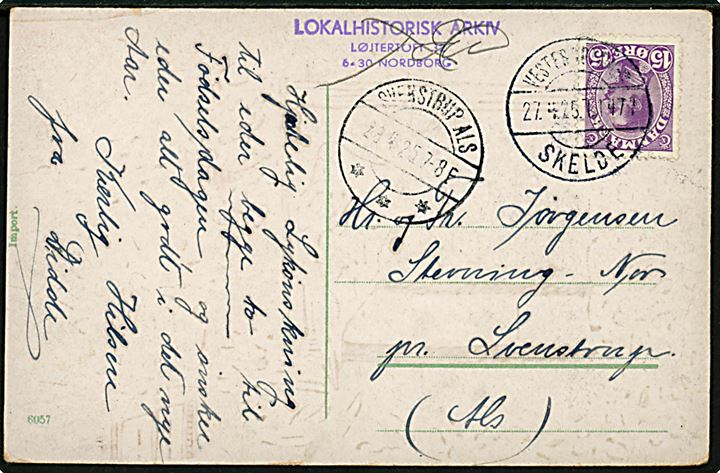 LOKALHISTORISK ARKIV
LØJTERTOFT
6430 NORDBORG
Hjertelig Lykønskning
til eder begge to til
Fødselsdagen og ønsker
eder alt godt i det nye
Aar.
Kærlig Hilsen
fra Didde
Import.
6057
SVENSTRUP ALS
29.4.25.7-8F
VESTER
27.4.25.
SKELDE
15 ØRE 15
DANMARK
Hr. og Fr. Jørgensen
Stevning-Nor
pr. Svenstrup.
(Als)